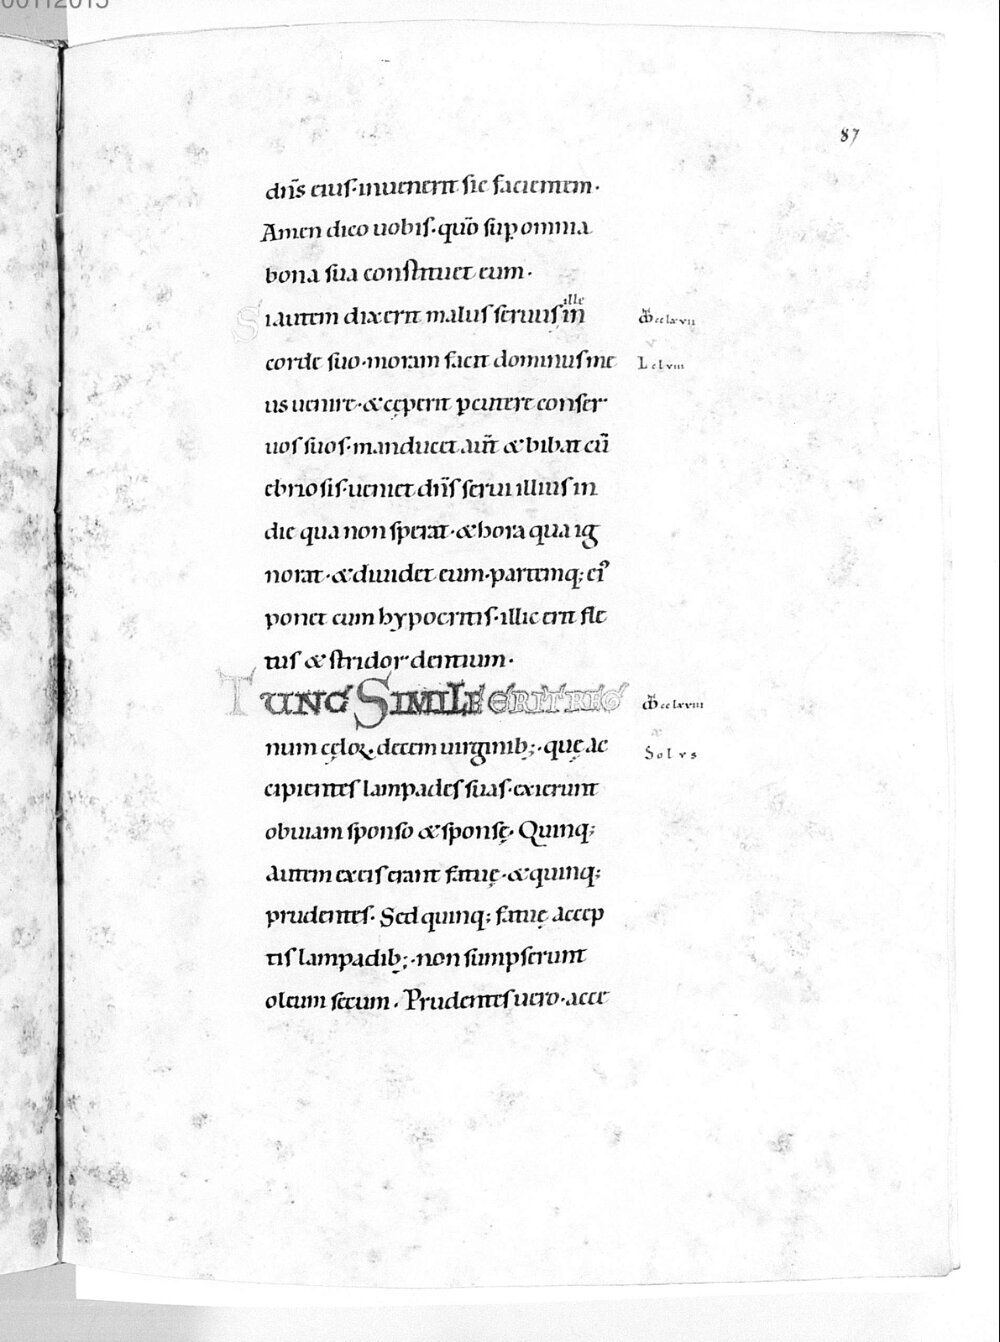 87
dn̄s eius·inuenerit sic facientem·
Amen dico uobis·quō sup̱ omnia
bona sua constituet eum·
Siautem dixerit malus seruus ille in
corde suo·moram facit dominus me
us uenire·&cęperit p̱cutere conser
uos suos·manducet aut̄ & bibat cū
ebriosis·ueniet dn̄s serui illius in
die qua non sperat·&hora qua ig
norat·&diuidet eum·partemq; ei᾽
ponet cum hypocritis·illic erit fle
tus & stridor dentium·
TUNC SIMILE ERIT REG
num cęloꝝ decem uirginib;·quę ac
cipientes lampades suas·exierunt
obuiam sponso &sponsę· Quinq;
autem exeis erant fatuę·&quinq;
prudentes· Sed quinq; fatuę accep
tis lampadib;·non sumpserunt
oleum secum· Prudentes uero·acce
cclxvii
L clviii
cclxviii
Solus